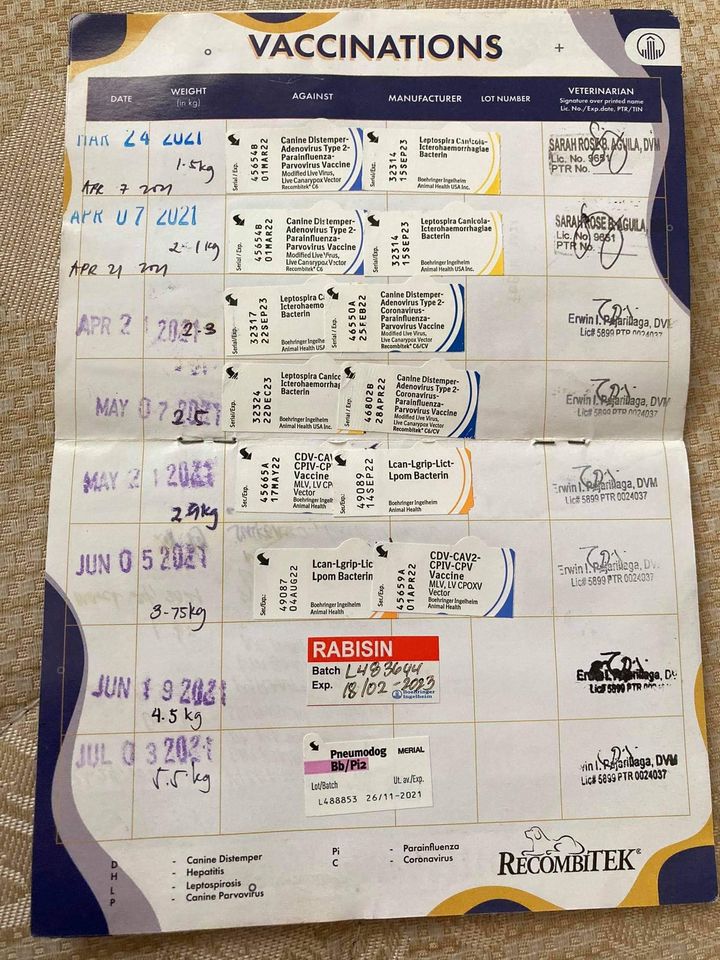 VACCINATIONS
DATE
WEIGHT
(in kg)
AGAINST
MANUFACTURER
LOT NUMBER
VETERINARIAN
Signature over printed name
Lic. No./Exp.date, PTR/TIN
MAR 24 2021
1.5kg
APR 7 2021
Serial/Exp.
45654B
01MAR22
Canine Distemper-
Adenovirus Type 2-
Parainfluenza-
Parvovirus Vaccine
Modified Live Virus,
Live Canarypox Vector
Recombitek® C6
Serial/Exp.
32314
15SEP23
Leptospira Canicola-
Icterohaemorrhagiae
Bacterin
Boehringer Ingelheim
Animal Health USA Inc.
SARAH ROSE B. AGUILA, DVM
Lic. No. 9651
PTR No.
APR 07 2021
2.1kg
APR 21 2021
Serial / Exp.
45654B
01MAR22
Canine Distemper-
Adenovirus Type 2-
Parainfluenza-
Parvovirus Vaccine
Modified Live Virus,
Live Canarypox Vector
Recombitek® C6
Serial / Exp.
32314
15SEP23
Leptospira Canicola-
Icterohaemorrhagiae
Bacterin
Boehringer Ingelheim
Animal Health USA Inc.
SARAH ROSE B. AGUILA,
Lic. No. 9651
PTR No.
APR 21 2021
2.3
Serial/Exp.
32317
22SEP23
Leptospira C
Icterohaemo
Bacterin
Boehringer Ingelhe
Animal Health USA
46550A
25FEB22
Canine Distemper-
Adenovirus Type 2-
Coronavirus-
Parainfluenza-
Parvovirus Vaccine
Modified Live Virus,
Live Canarypox Vector
Recombitek® C6/CV
Erwin I. Pajarillaga, DVM
Lic# 5899 PTR 0024037
MAY 07 2021
2.5
Serial/Exp.
32324
22DEC23
Leptospira Canico
Icterohaemorrhag
Bacterin
Boehringer Ingelheim
Animal Health USA Inc.
Serial / Exp.
46802B
28APR22
Canine Distemper-
Adenovirus Type 2-
Coronavirus-
Parainfluenza-
Parvovirus Vaccine
Modified Live Virus,
Live Canarypox Vector
Recombitek® C6/CV
Erwin I. Pajarillaga, DVM
Lic# 5899 PTR 0024037
MAY 21 2021
2.9kg
Ser./Exp.
45665A
17MAY22
CDV-CAV
CPIV-CP
Vaccine
MLV, LV CP
Vector
Boehringer Ingelheim
Animal Health
Ser./Exp.
49089
14SEP22
Lcan-Lgrip-Lict-
Lpom Bacterin
Erwin I. Pajarillaga, DVM
Lic# 5899 PTR 0024037
JUN 05 2021
3.75kg
Ser./Exp.
49087
04AUG22
Lcan-Lgrip-Lic
Lpom Bacterin
Boehringer Ingelheim
Animal Health
Ser./Exp.
45659A
01APR22
CDV-CAV2-
CPIV-CPV
Vaccine
MLV, LV CPOXV
Vector
Boehringer Ingelheim
Animal Health
Erwin I. Pajarillaga, DVM
Lic# 5899 PTR 0024037
JUN 19 2021
4.5 kg
RABISIN
Batch L483644
Exp. 18/02-2023
Boehringer
Ingelheim
Erwin I. Pajarillaga, DV
Lic# 5899 PTR
JUL 03 2021
5.5kg
Pneumodog
MERIAL
Bb/Pi2
Lot/Batch
Ut. av./Exp.
L488853 26/11-2021
rwin I. Pajarillaga, DVM
Lic# 5899 PTR 0024037
D - Canine Distemper
H - Hepatitis
L - Leptospirosis
P - Canine Parvovirus
Pi - Parainfluenza
C - Coronavirus
RECOMBITEK®